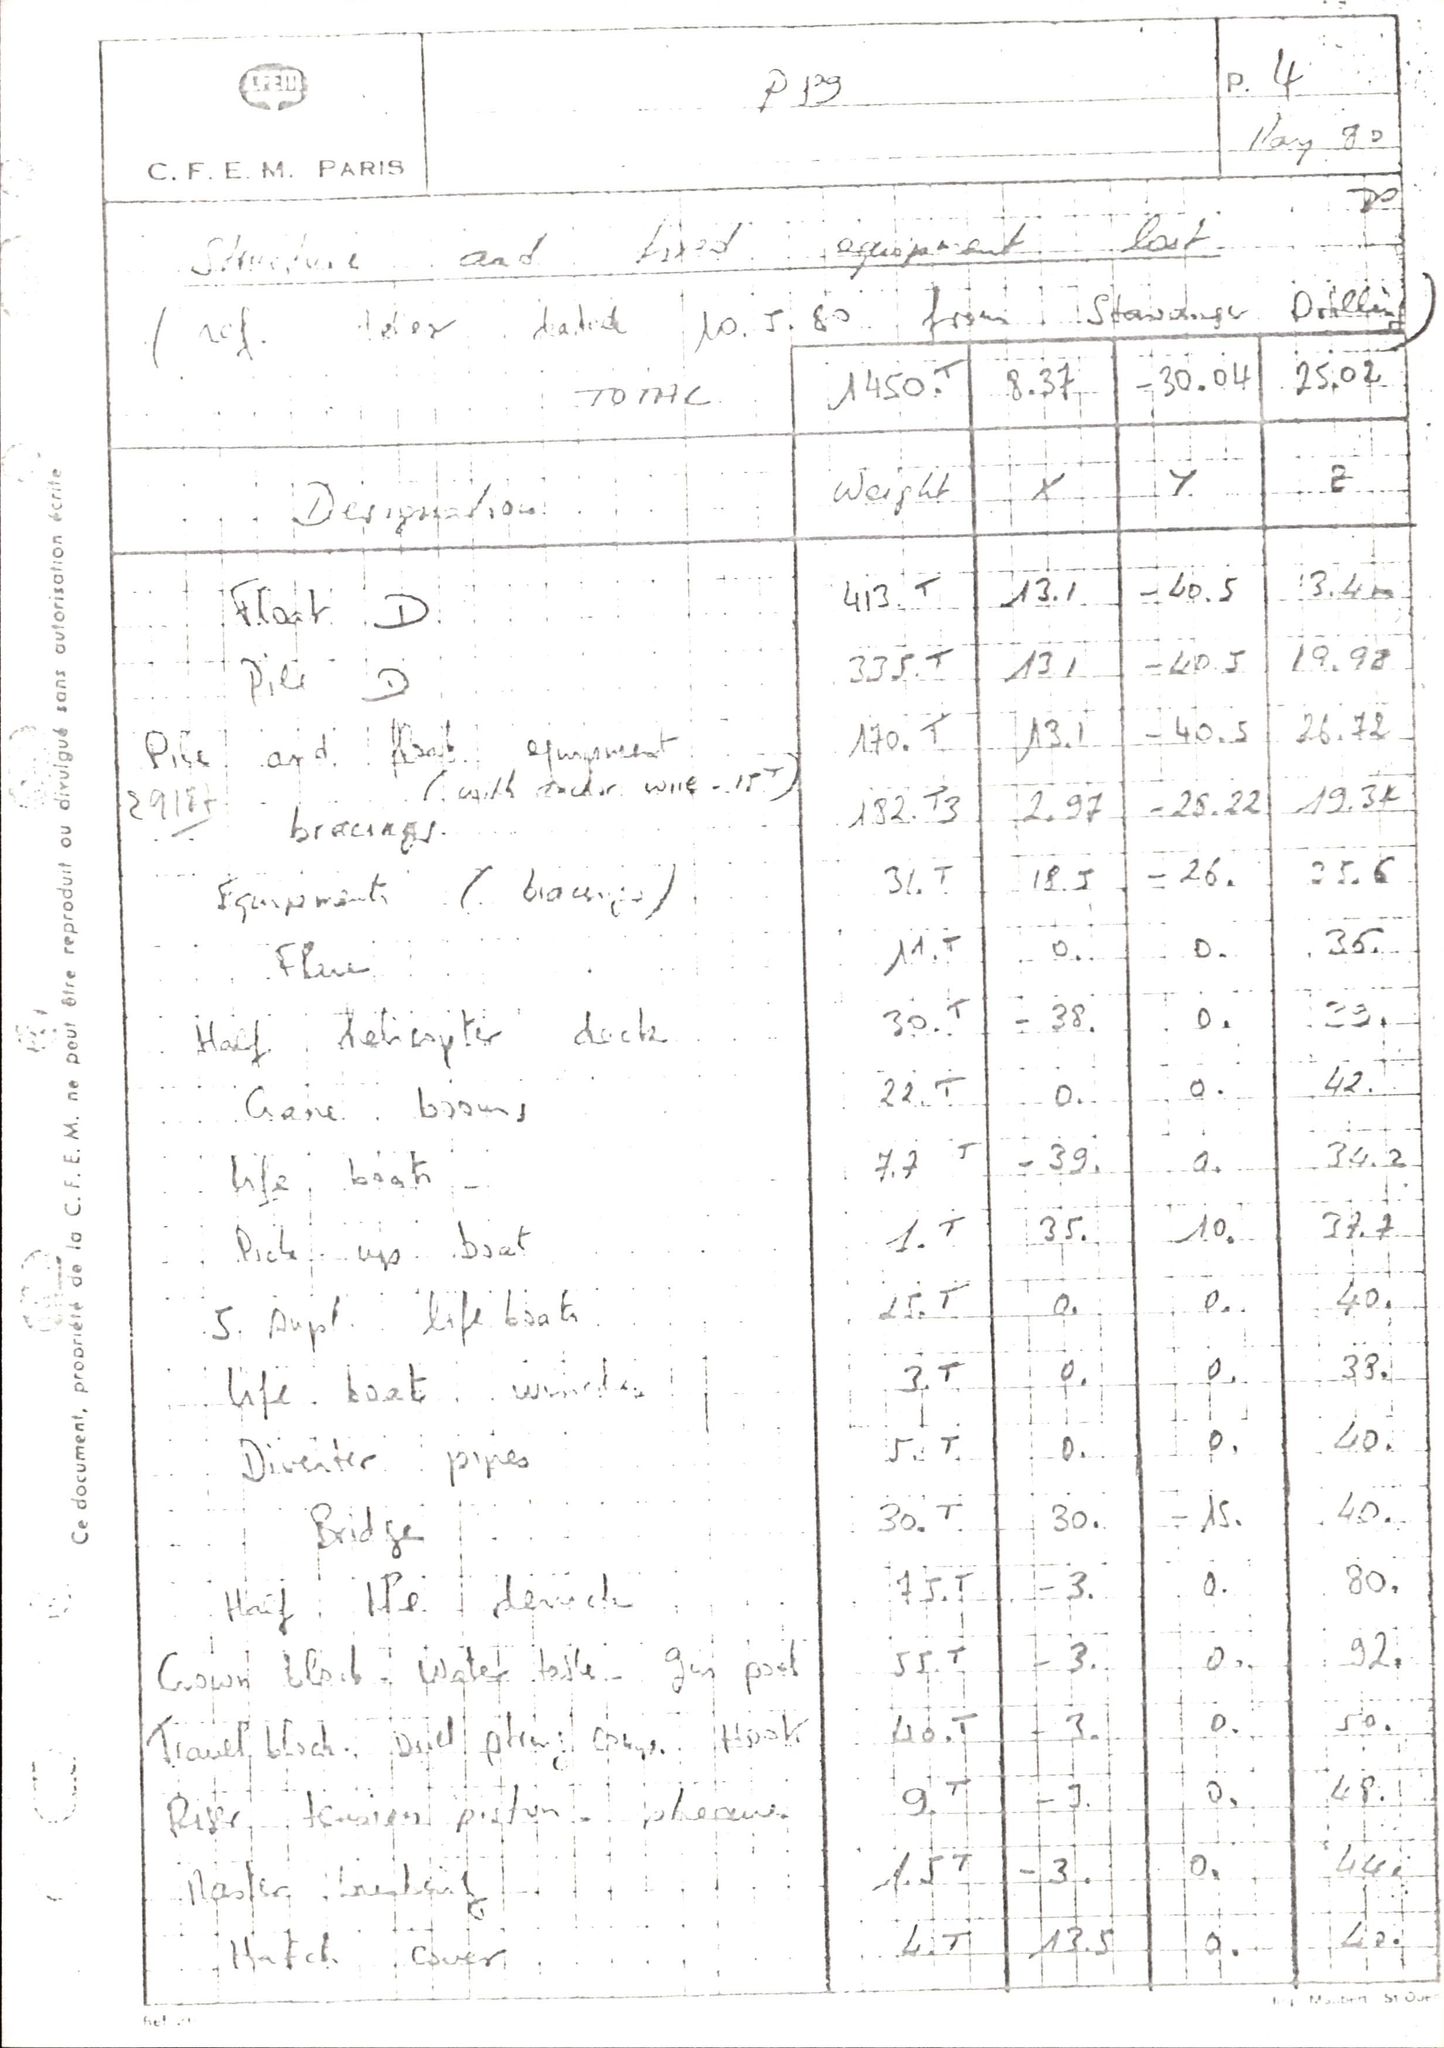 CFEM
C. F. E. M. PARIS
P 139
p. 4
May 80
Structure and fixed equipment lost
(ref. telex dated 10.5.80 from Stavanger Drilling)
TOTAL 1450.T 8.37 -30.04 25.02
Designation Weight X Y Z
Float D 413.T 13.1 -40.5 3.4
Pile D 335.T 13.1 -40.5 19.98
Pile and float equipment 170.T 13.1 -40.5 26.72
(with anchor wire - 15T)
bracings 182.T3 2.97 -28.22 19.34
Equipments (bracings) 31.T 18.5 -26. 25.6
Flare 11.T 0. 0. 35.
Half helicopter deck 30.T -38. 0. 33.
Crane booms 22.T 0. 0. 42.
Life boats - 7.7 T -39. 0. 34.2
Pick up boat 1.T 35. 10. 37.7
5 supl. life boats 25.T 0. 0. 40.
Life boat winches 3.T 0. 0. 38.
Diverter pipes 5.T 0. 0. 40.
Bridge 30.T 30. -15. 40.
Half the derrick 75.T -3. 0. 80.
Crown block - Water table - Gin pool 55.T -3. 0. 92.
Travel block. Drill string comp. Hook 40.T -3. 0. 50.
Riser tension piston - 9.T -3. 0. 48.
Master bushing 1.5T -3. 0. 44.
Hatch cover 4.T 13.5 0. 40.
Ce document, propriété de la C.F.E.M. ne peut être reproduit ou divulgué sans autorisation écrite